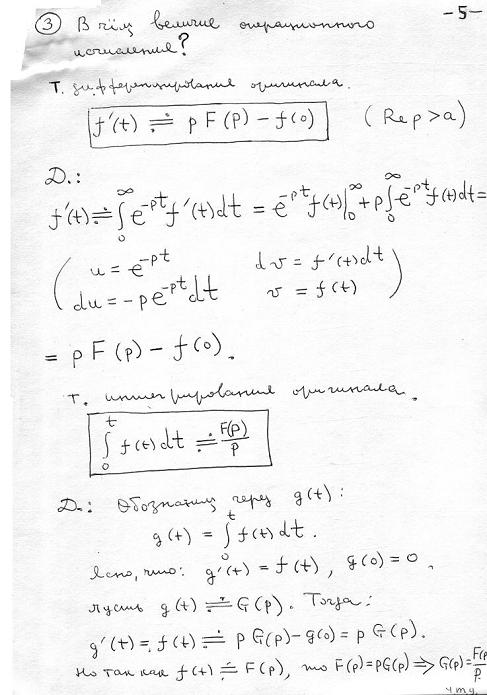 -5-
③ В чём величие операционного
исчисления?
Т. дифференцирования оригинала.
f'(t) ≓ p F(p) − f(0) (Re p > a)
Д.:
f'(t) ≓ ∫₀^∞ e^{-pt} f'(t) dt = e^{-pt} f(t)|₀^∞ + p ∫₀^∞ e^{-pt} f(t) dt =
( u = e^{-pt} dv = f'(t) dt
du = −p e^{-pt} dt v = f(t) )
= p F(p) − f(0).
т. интегрирования оригинала.
∫₀^t f(t) dt ≓ F(p)/p
Д.: Обозначим через g(t):
g(t) = ∫₀^t f(t) dt.
Ясно, что: g'(t) = f(t), g(0) = 0.
пусть g(t) ≓ G(p). Тогда:
g'(t) = f(t) ≓ p G(p) − g(0) = p G(p).
Но так как f(t) ≓ F(p), то F(p) = pG(p) ⇒ G(p) = F(p)/p
чтд.